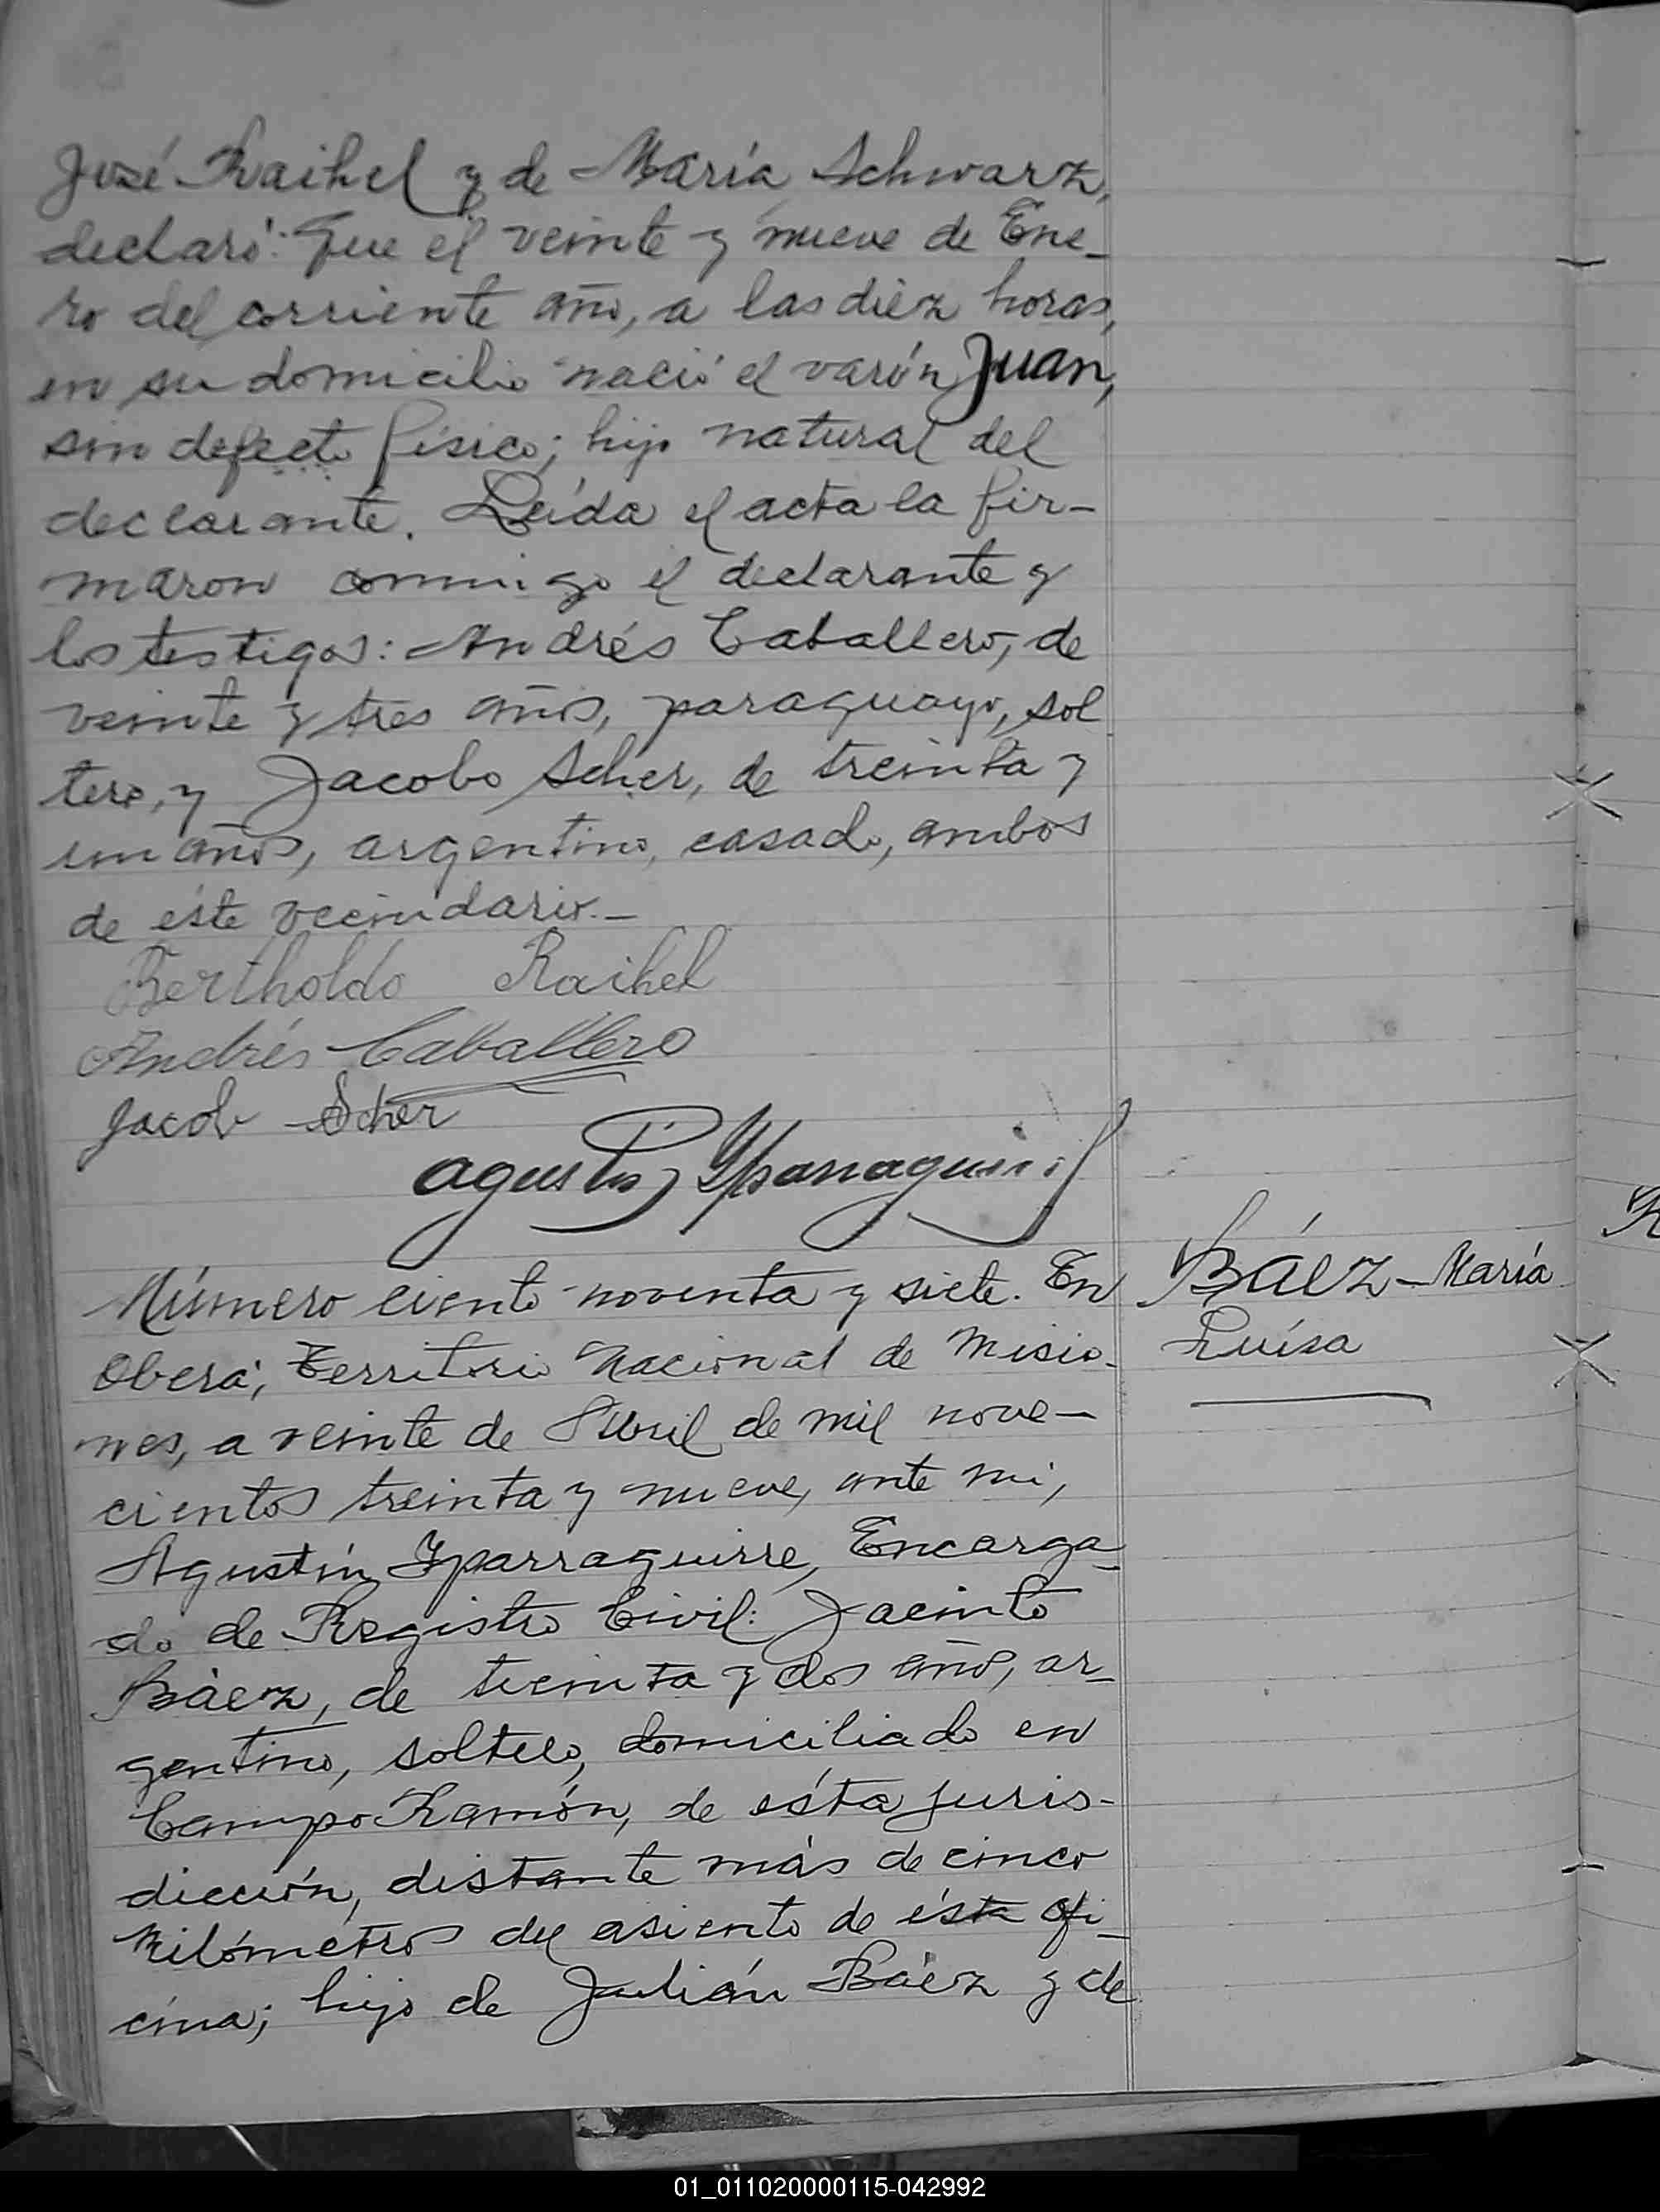 José Raihel y de María Schwarz,
declaró: Que el veinte y nueve de Ene-
ro del corriente año, a las diéz horas,
en su domicilio nació el varón Juan,
sin defecto físico; hijo natural del
declarante. Leída el acta la fir-
maron conmigo el declarante y
los testigos: Andrés Caballero, de
veinte y tres años, paraguayo, sol
tero, y Jacobo Scher, de treinta y
un años, argentino, casado, ambos
de éste vecindario.-
Bertholdo Raihel
Andrés Caballero
Jacob Scher
Agustín Yparraguirre
Número ciento noventa y siete. En
Oberá, Territorio Nacional de Misio-
nes, a veinte de Abril de mil nove-
cientos treinta y nueve, ante mi,
Agustín Yparraguirre, Encarga-
do de Registro Civil: Jacinto
Báez, de treinta y dos años, ar-
gentino, soltero, domiciliado en
Campo Ramón, de ésta juris-
dicción, distante más de cinco
kilómetros del asiento de ésta ofi-
cina; hijo de Julián Báez y de
Báez - María
Luísa
01_011020000115-042992